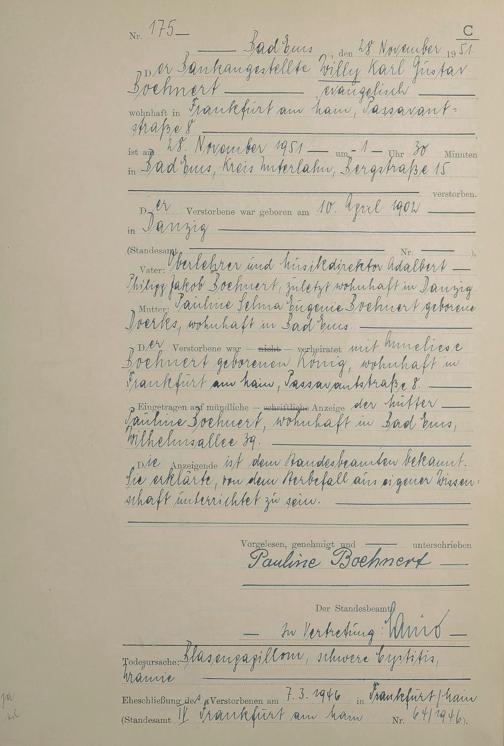 C
Nr. 175
Bad Ems, den 28. November 1951
Der Bankangestellte Willy Karl Gustav
Boehnert evangelisch
wohnhaft in Frankfurt am Main, Passavant-
straße 8
ist am 28. November 1951 um 1 Uhr 30 Minuten
in Bad Ems, Kreis Unterlahn, Bergstraße 15
verstorben.
Der Verstorbene war geboren am 10. April 1902
in Danzig
(Standesamt Nr. ).
Vater: Oberlehrer und Musikdirektor Adalbert
Philipp Jakob Boehnert, zuletzt wohnhaft in Danzig
Mutter: Pauline Selma Eugenie Boehnert geborene
Doerks, wohnhaft in Bad Ems.
Der Verstorbene war nicht verheiratet mit Anneliese
Boehnert geborenen König, wohnhaft in
Frankfurt am Main, Passavantstraße 8.
Eingetragen auf mündliche schriftliche Anzeige der Mutter
Pauline Boehnert, wohnhaft in Bad Ems,
Wilhelmsallee 39.
Die Anzeigende ist dem Standesbeamten bekannt.
Sie erklärte, von dem Sterbefall aus eigener Wissen-
schaft unterrichtet zu sein.
Vorgelesen, genehmigt und unterschrieben
Pauline Boehnert
Der Standesbeamte
In Vertretung:
Todesursache: Blasenpapillom, schwere Cystitis,
Urämie
Eheschließung des Verstorbenen am 7.3.1946 in Frankfurt/Main
(Standesamt IV Frankfurt am Main Nr. 64/1946).